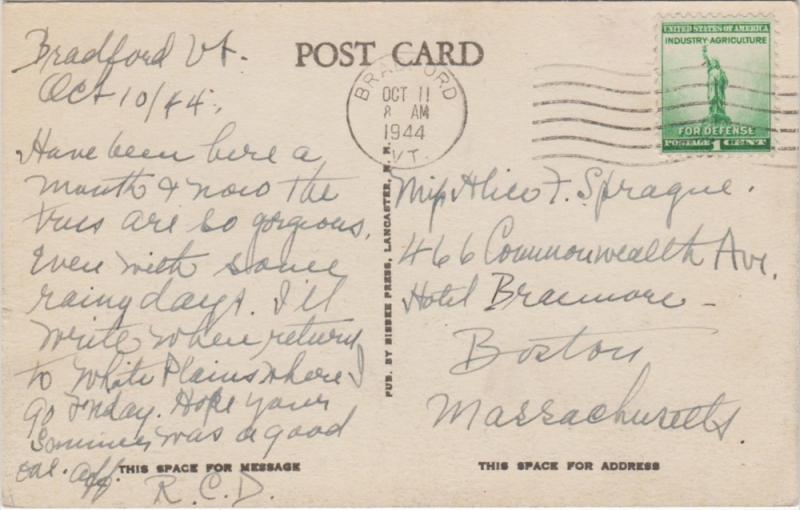 Bradford Vt.
Oct 10/44.
POST CARD
BRADFORD
OCT 11
8 AM
1944
VT.
UNITED STATES OF AMERICA
INDUSTRY-AGRICULTURE
FOR DEFENSE
POSTAGE 1 CENT
Have been here a
month & now the
trees are so gorgeous,
Even with some
rainy days. I'll
write when return
to White Plains where I
go Friday. Hope your
Summer was a good
one. aff.
R.C.D.
THIS SPACE FOR MESSAGE
PUB. BY BISBEE PRESS, LANCASTER, N. H.
Miss Alice F. Sprague.
466 Commonwealth Ave.
Hotel Braemore
Boston
Massachusetts.
THIS SPACE FOR ADDRESS